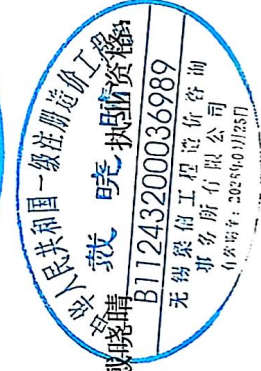 中华人民共和国一级注册造价工程师
戴 晓 晴 执业资格
戴晓晴
B111243200036989
无锡梁信工程造价咨询
事务所有限公司
有效期至：2025年01月25日